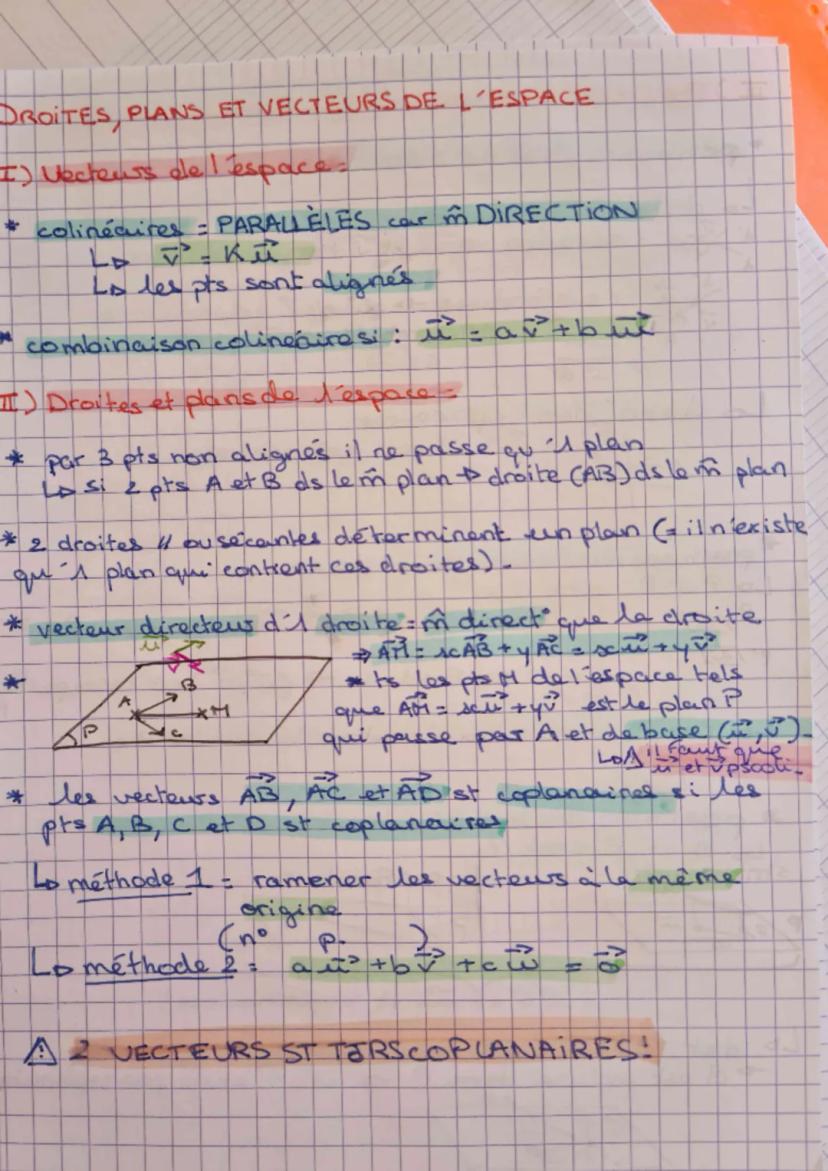 DROITES, PLANS ET VECTEURS DE L'ESPACE
I) Vecteurs de l'espace =
* colinéaires = PARALLÈLES car m̂ DIRECTION
↳ v⃗ = K u⃗
↳ les pts sont alignés
* combinaison colinéaire si : u⃗ = a v⃗ + b w⃗
II) Droites et plans de l'espace =
* par 3 pts non alignés il ne passe qu'1 plan
↳ si 2 pts A et B ds le m̂ plan → droite (AB) ds le m̂ plan
* 2 droites // ou sécantes déterminent un plan (= il n'existe
qu'1 plan qui contient ces droites).
* vecteur directeur d'1 droite = m̂ direct° que la droite
u⃗
v⃗
B
A
M
C
P
* ⇒ AM⃗ = xAB⃗ + yAC⃗ = xu⃗ + yv⃗
* ts les pts M de l'espace tels
que AM⃗ = xu⃗ + yv⃗ est le plan P
qui passe par A et de base (u⃗, v⃗).
↳ ⚠ il faut que
u⃗ et v⃗ ps coli.
* les vecteurs AB⃗, AC⃗ et AD⃗ st coplanaires si les
pts A, B, C et D st coplanaires
↳ méthode 1 = ramener les vecteurs à la même
origine
(n° p. )
↳ méthode 2 = a u⃗ + b v⃗ + c w⃗ = o⃗
⚠ 2 VECTEURS ST TJRS COPLANAIRES !